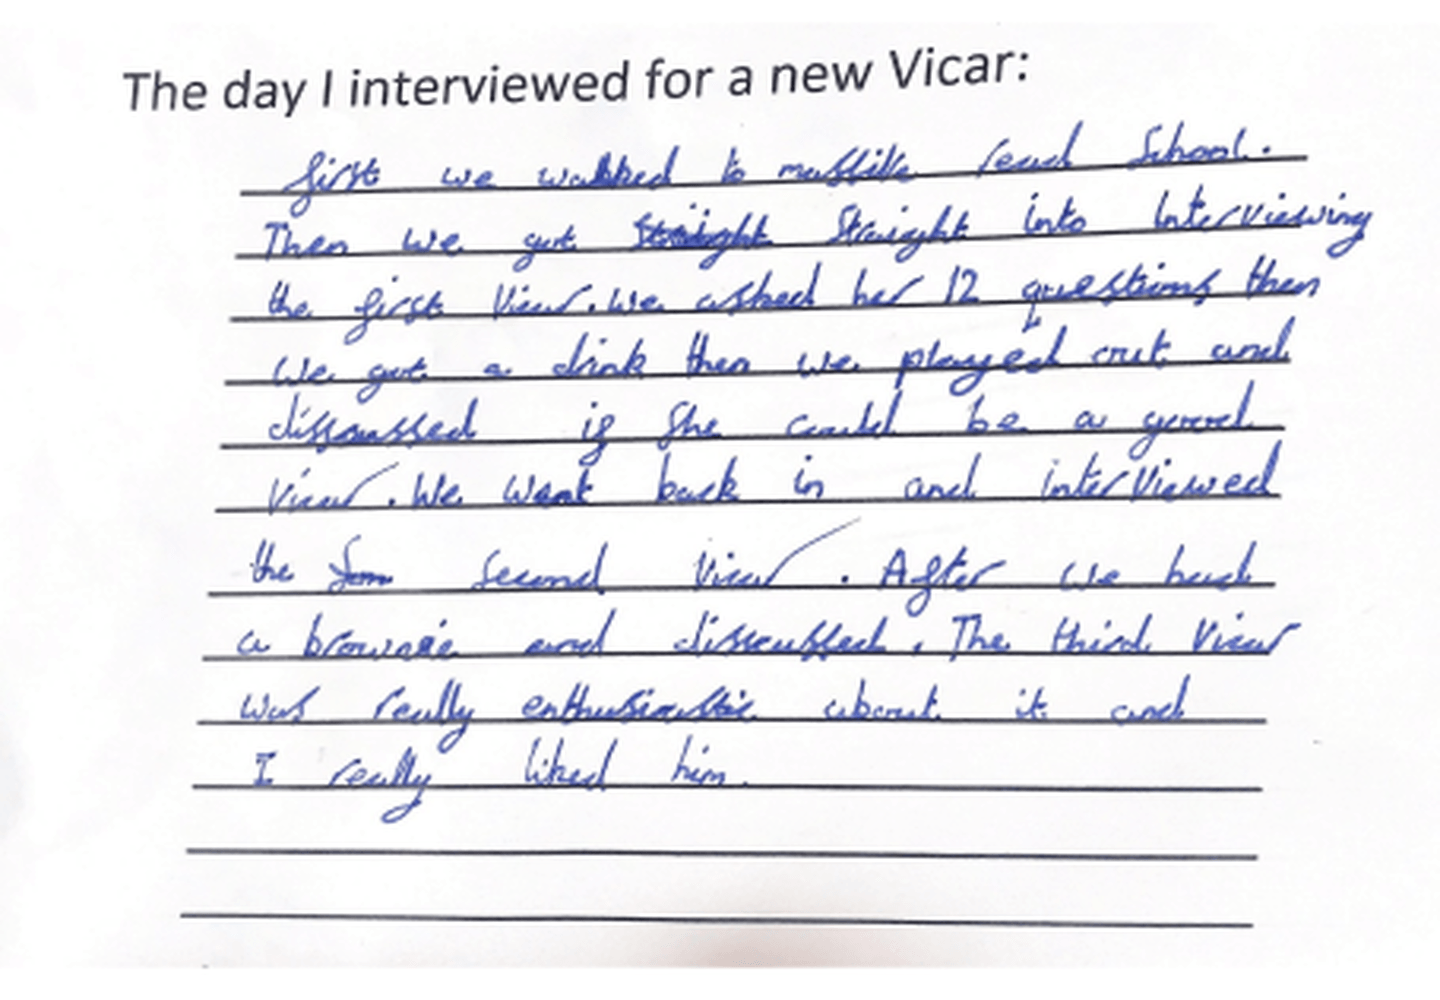 The day I interviewed for a new Vicar:
first we walked to road School.
Then we got Straight Straight into Interviewing
the first Vicar. We asked her 12 questions then
we got a drink then we played out and
disscussed if she could be a good
Vicar. We went back in and interViewed
the second Vicar. After we had
a brownie and disscussed. The third Vicar
was really enthusiastic about it and
I really liked him.